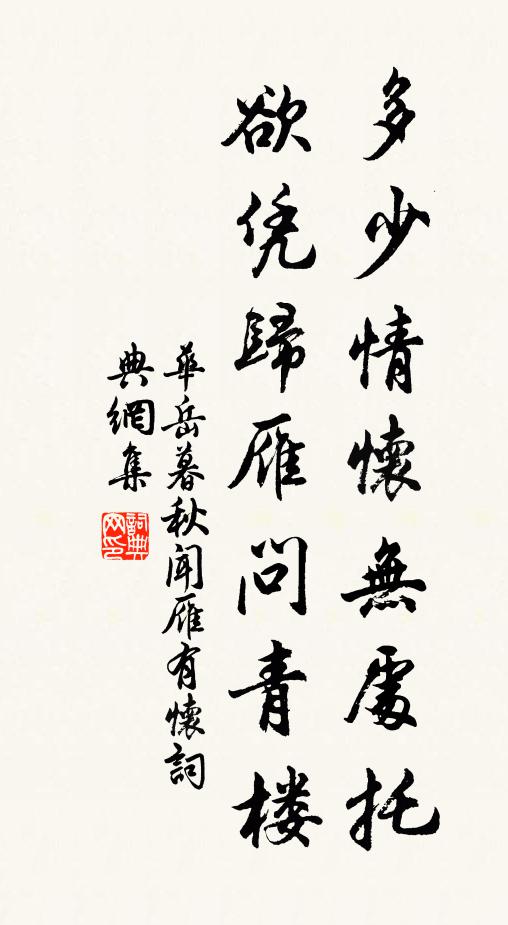 多少情懷無處托
欲凭歸雁問青楼
華岳暮秋闻雁有懷詞
典網集
詞典网印